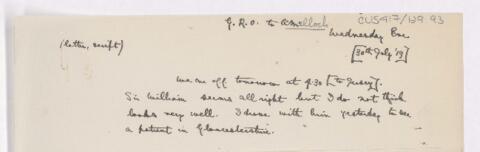 G.R.O. to A. Malloch
CUS417/129.93
Wednesday Eve
(letter, script)
[30th July '19]
We are off tomorrow at 9.30 [to Jersey].
Sir William seems all right but I do not think
looks very well. I drove with him yesterday to see
a patient in Gloucestershire.